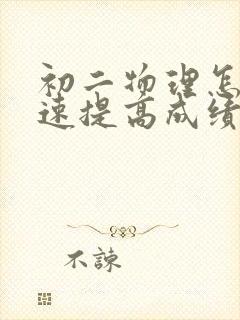 初二物理怎
速提高成绩
不諫